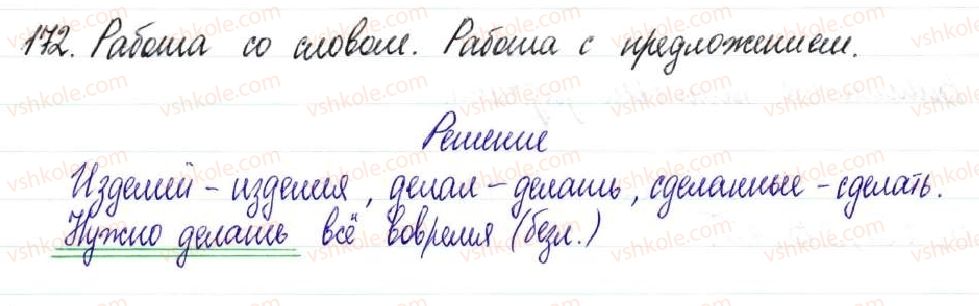 172. Работа со словом. Работа с предложением.
Решение
Изделий - изделия, делал - делать, сделанные - сделать.
Нужно делать всё вовремя (безл.)